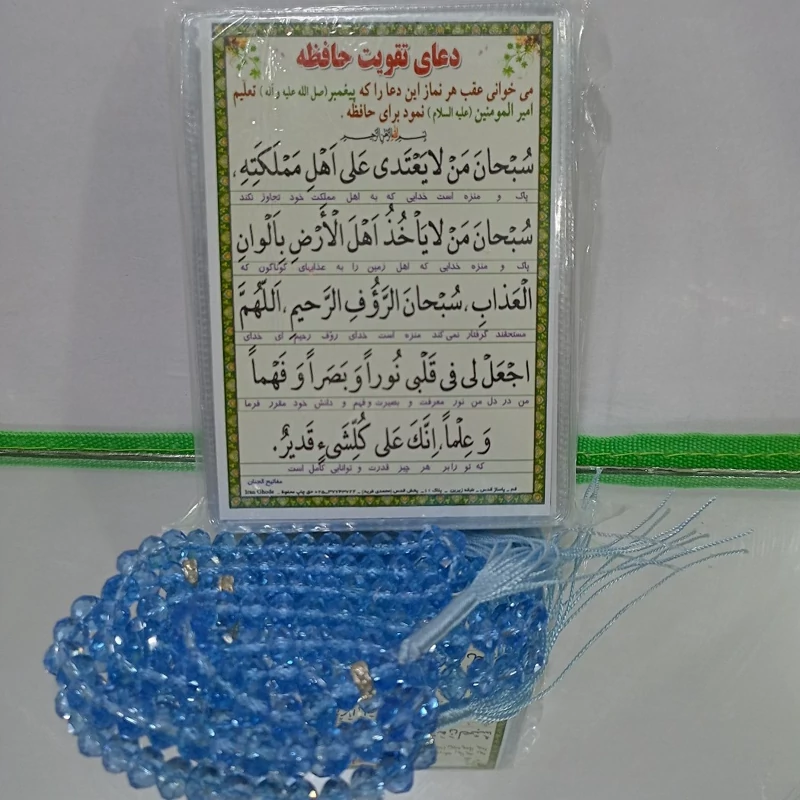 دعای تقویت حافظه
می خوانی عقب هر نماز این دعا را که پیغمبر (صل الله علیه و آله) تعلیم
امیر المومنین (علیه السلام) نمود برای حافظه .
بسم الله الرحمن الرحیم
سُبْحانَ مَنْ لا یَعْتَدی عَلی اَهْلِ مَمْلَکَتِهِ،
پاک و منزه است خدایی که به اهل مملکت خود تجاوز نکند
سُبْحانَ مَنْ لا یَاْخُذُ اَهْلَ الْأَرْضِ بِاَلْوانِ
پاک و منزه خدایی که اهل زمین را به عذابهای گوناگون که
الْعَذابِ، سُبْحانَ الرَّؤُفِ الرَّحیمِ، اَللّهُمَّ
مستحقند گرفتار نمی کند منزه است خدای رؤف رحیم ای خدای
اجْعَلْ لی فی قَلْبی نُوراً وَ بَصَراً وَ فَهْماً
من در دل من نور معرفت و بصیرت و فهم و دانش خود مقرر فرما
وَ عِلْماً، اِنَّکَ عَلی کُلِّشَیءٍ قَدیرٌ.
که تو را بر هر چیز قدرت و توانایی کامل است
مفاتیح الجنان